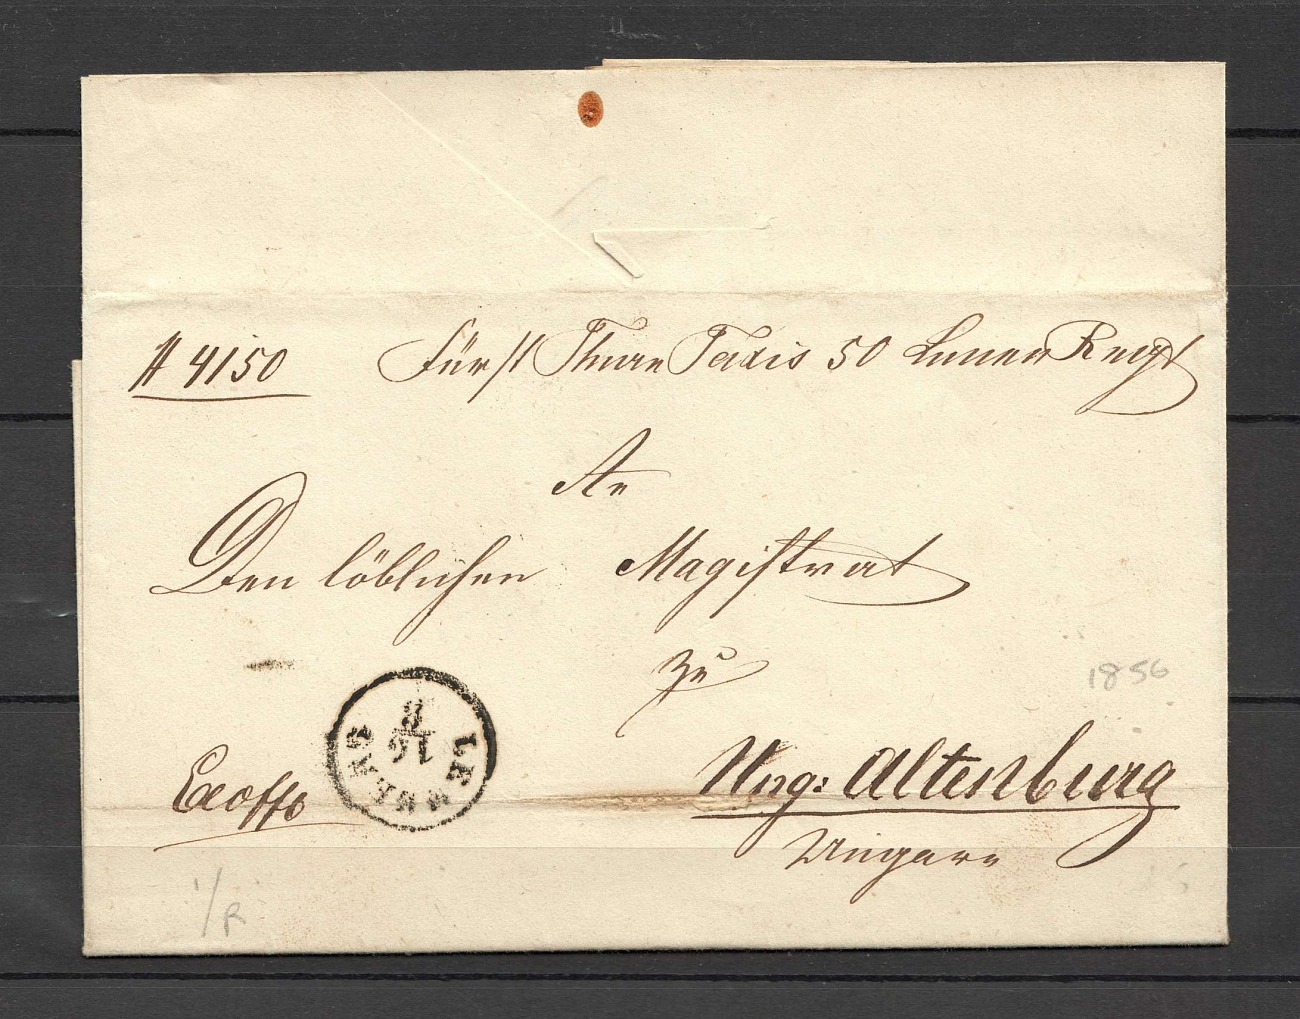 # 4150 Fürst Thurn Taxis 50 Linien Regt
An
Den löblichen Magistrat
zu
1856
LEMBERG
16
8
Exoffo
Ung: Altenburg
Ungarn
1/R